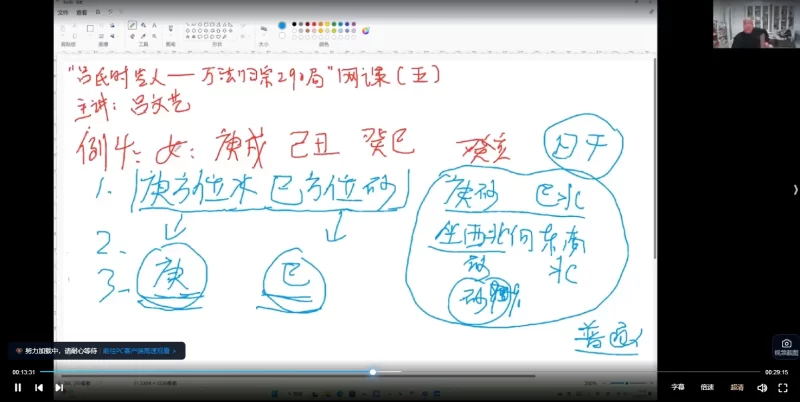 文件 查看
"吕氏时空人——万法归宗290局"网课(五)
主讲:吕文艺
例4:女:庚戌 己丑 癸巳 癸亥
日干
1. 庚方位水 巳方位砂
庚砂 巳水
坐西北向东南
2.
砂 水
3. 庚 巳
砂
普通人
努力加载中,请耐心等待
00:13:31
00:29:15
字幕 倍速 超清
视频截图